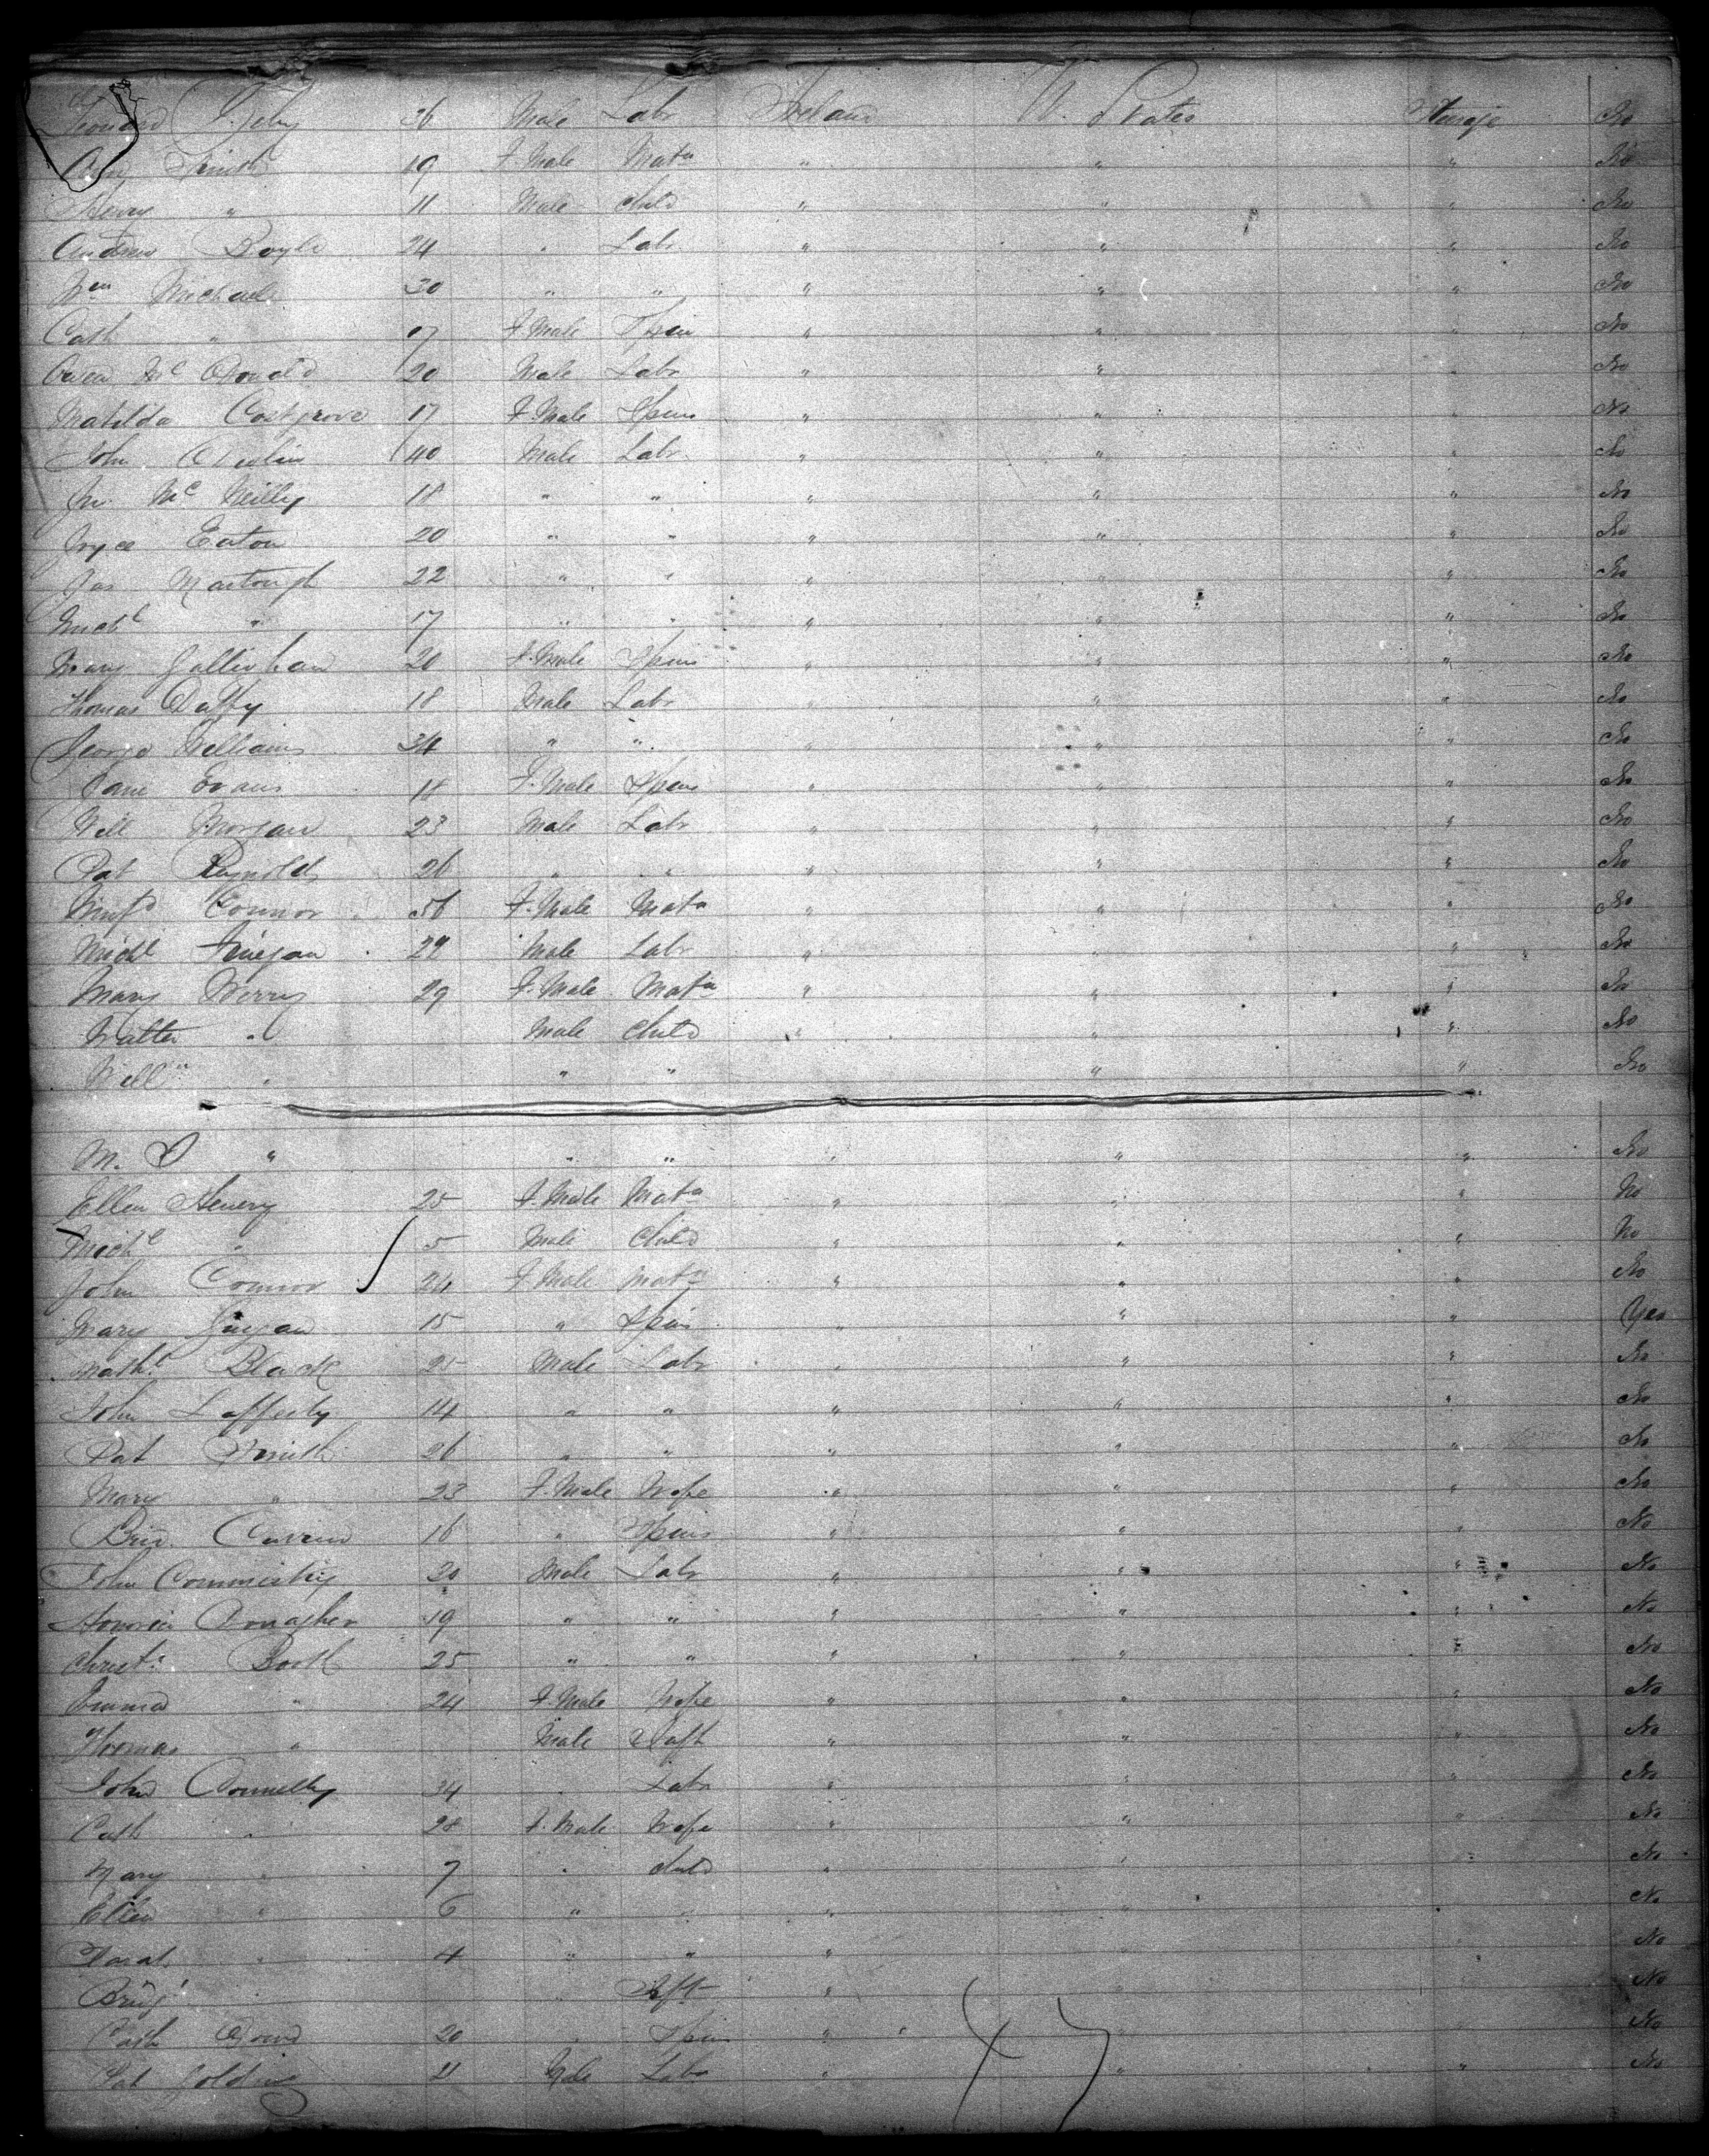 36 Male Labr Ireland U. States Steerage No
Ann Smith 19 F. Male Matn " " " No
Henry " 11 Male Child " " " No
Andrew Boyle 24 " Labr " " " No
Wm Michael 30 " " " " " No
Cath " 17 F. Male Spin " " " No
Owen Mc Donald 20 Male Labr " " " No
Matilda Costgrove 17 F. Male Spin " " " No
John Devlin 40 Male Labr " " " No
Mc Neilly 18 " " " " " No
Joyce Eaton 20 " " " " " No
Jas Martough 22 " " " " " No
Michl " 17 " " " " " No
Mary Gallighan 20 F. Male Spin " " " No
Thomas Duffy 18 Male Labr " " " No
George Williams 34 " " " " " No
Jane Evans 18 F. Male Spin " " " No
Will Morgan 23 Male Labr " " " No
Pat Reynolds 26 " " " " " No
Winfd Connor 56 F. Male Matn " " " No
Michl Finegan 29 Male Labr " " " No
Mary Berry 29 F. Male Matn " " " No
Walter " Male Child " " " No
Willm " " " " " No
M. D " " " " " " No
Ellen Henery 25 F. Male Matn " " " No
Michl " 5 Male Child " " " No
John Connor 24 F. Male Matn " " " No
Mary 15 " Spin " " " Yes
Nathl Black 25 Male Labr " " " No
John Lafferty 14 " " " " " No
Pat Smith 26 " " " " " No
Mary " 23 F. Male Wife " " " No
Brid. 16 " Spin " " " No
John Commisky 20 Male Labr " " " No
Honora Donagher 19 " " " " " No
Christr Booth 25 " " " " " No
Emma " 24 F. Male Wife " " " No
Thomas " Male Inft " " " No
John Donnelly 34 " Labr " " " No
Cath " 28 F. Male Wife " " " No
Mary " 7 " Child " " " No
Ellen " 6 " " " " No
Sarah " 4 " " " No
Bridg " " Inft " No
Cath Dowd 20 " Spin " " No
Pat Golding 21 Male Labr " " " No